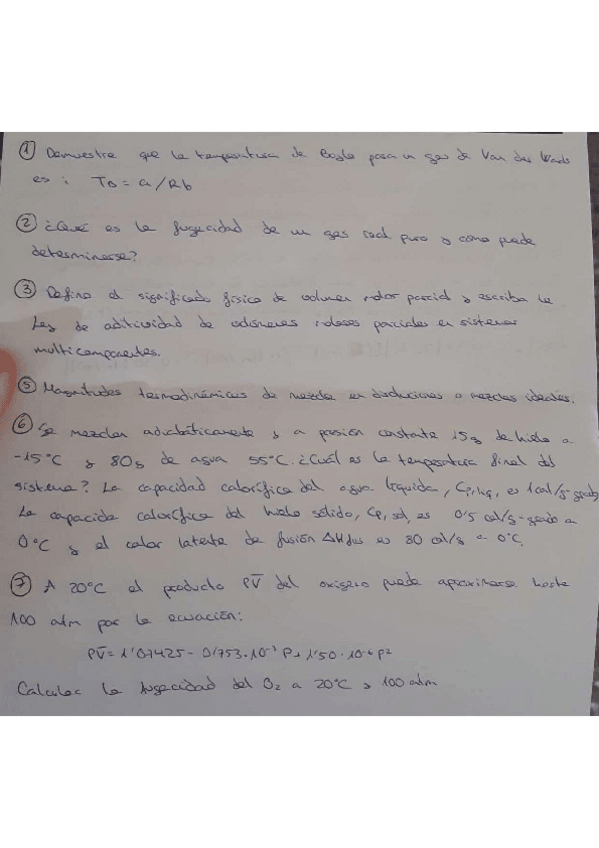 ① Demuestre que la temperatura de Boyle para un gas de Van der Waals
es : T_B = a/Rb
② ¿Qué es la fugacidad de un gas real puro y como puede
determinarse?
③ Defina el significado físico de volumen molar parcial y escriba la
Ley de aditividad de volúmenes molares parciales en sistemas
multicomponentes.
⑤ Magnitudes termodinámicas de mezcla en disoluciones o mezclas ideales.
⑥ Se mezclan adiabáticamente y a presión constante 15g de hielo a
-15°C y 80g de agua 55°C. ¿Cuál es la temperatura final del
sistema? La capacidad calorífica del agua líquida, Cp,liq, es 1cal/g-grado
La capacida calorífica del hielo sólido, Cp,sol, es 0'5 cal/g-grado a
0°C y el calor latente de fusión ΔHfus es 80 cal/g a 0°C.
⑦ A 20°C el producto PV̄ del oxígeno puede aproximarse hasta
100 atm por la ecuación:
PV̄ = 1'07425 - 0'753·10⁻³ P + 1'50·10⁻⁶ P²
Calcular la fugacidad del O₂ a 20°C y 100 atm